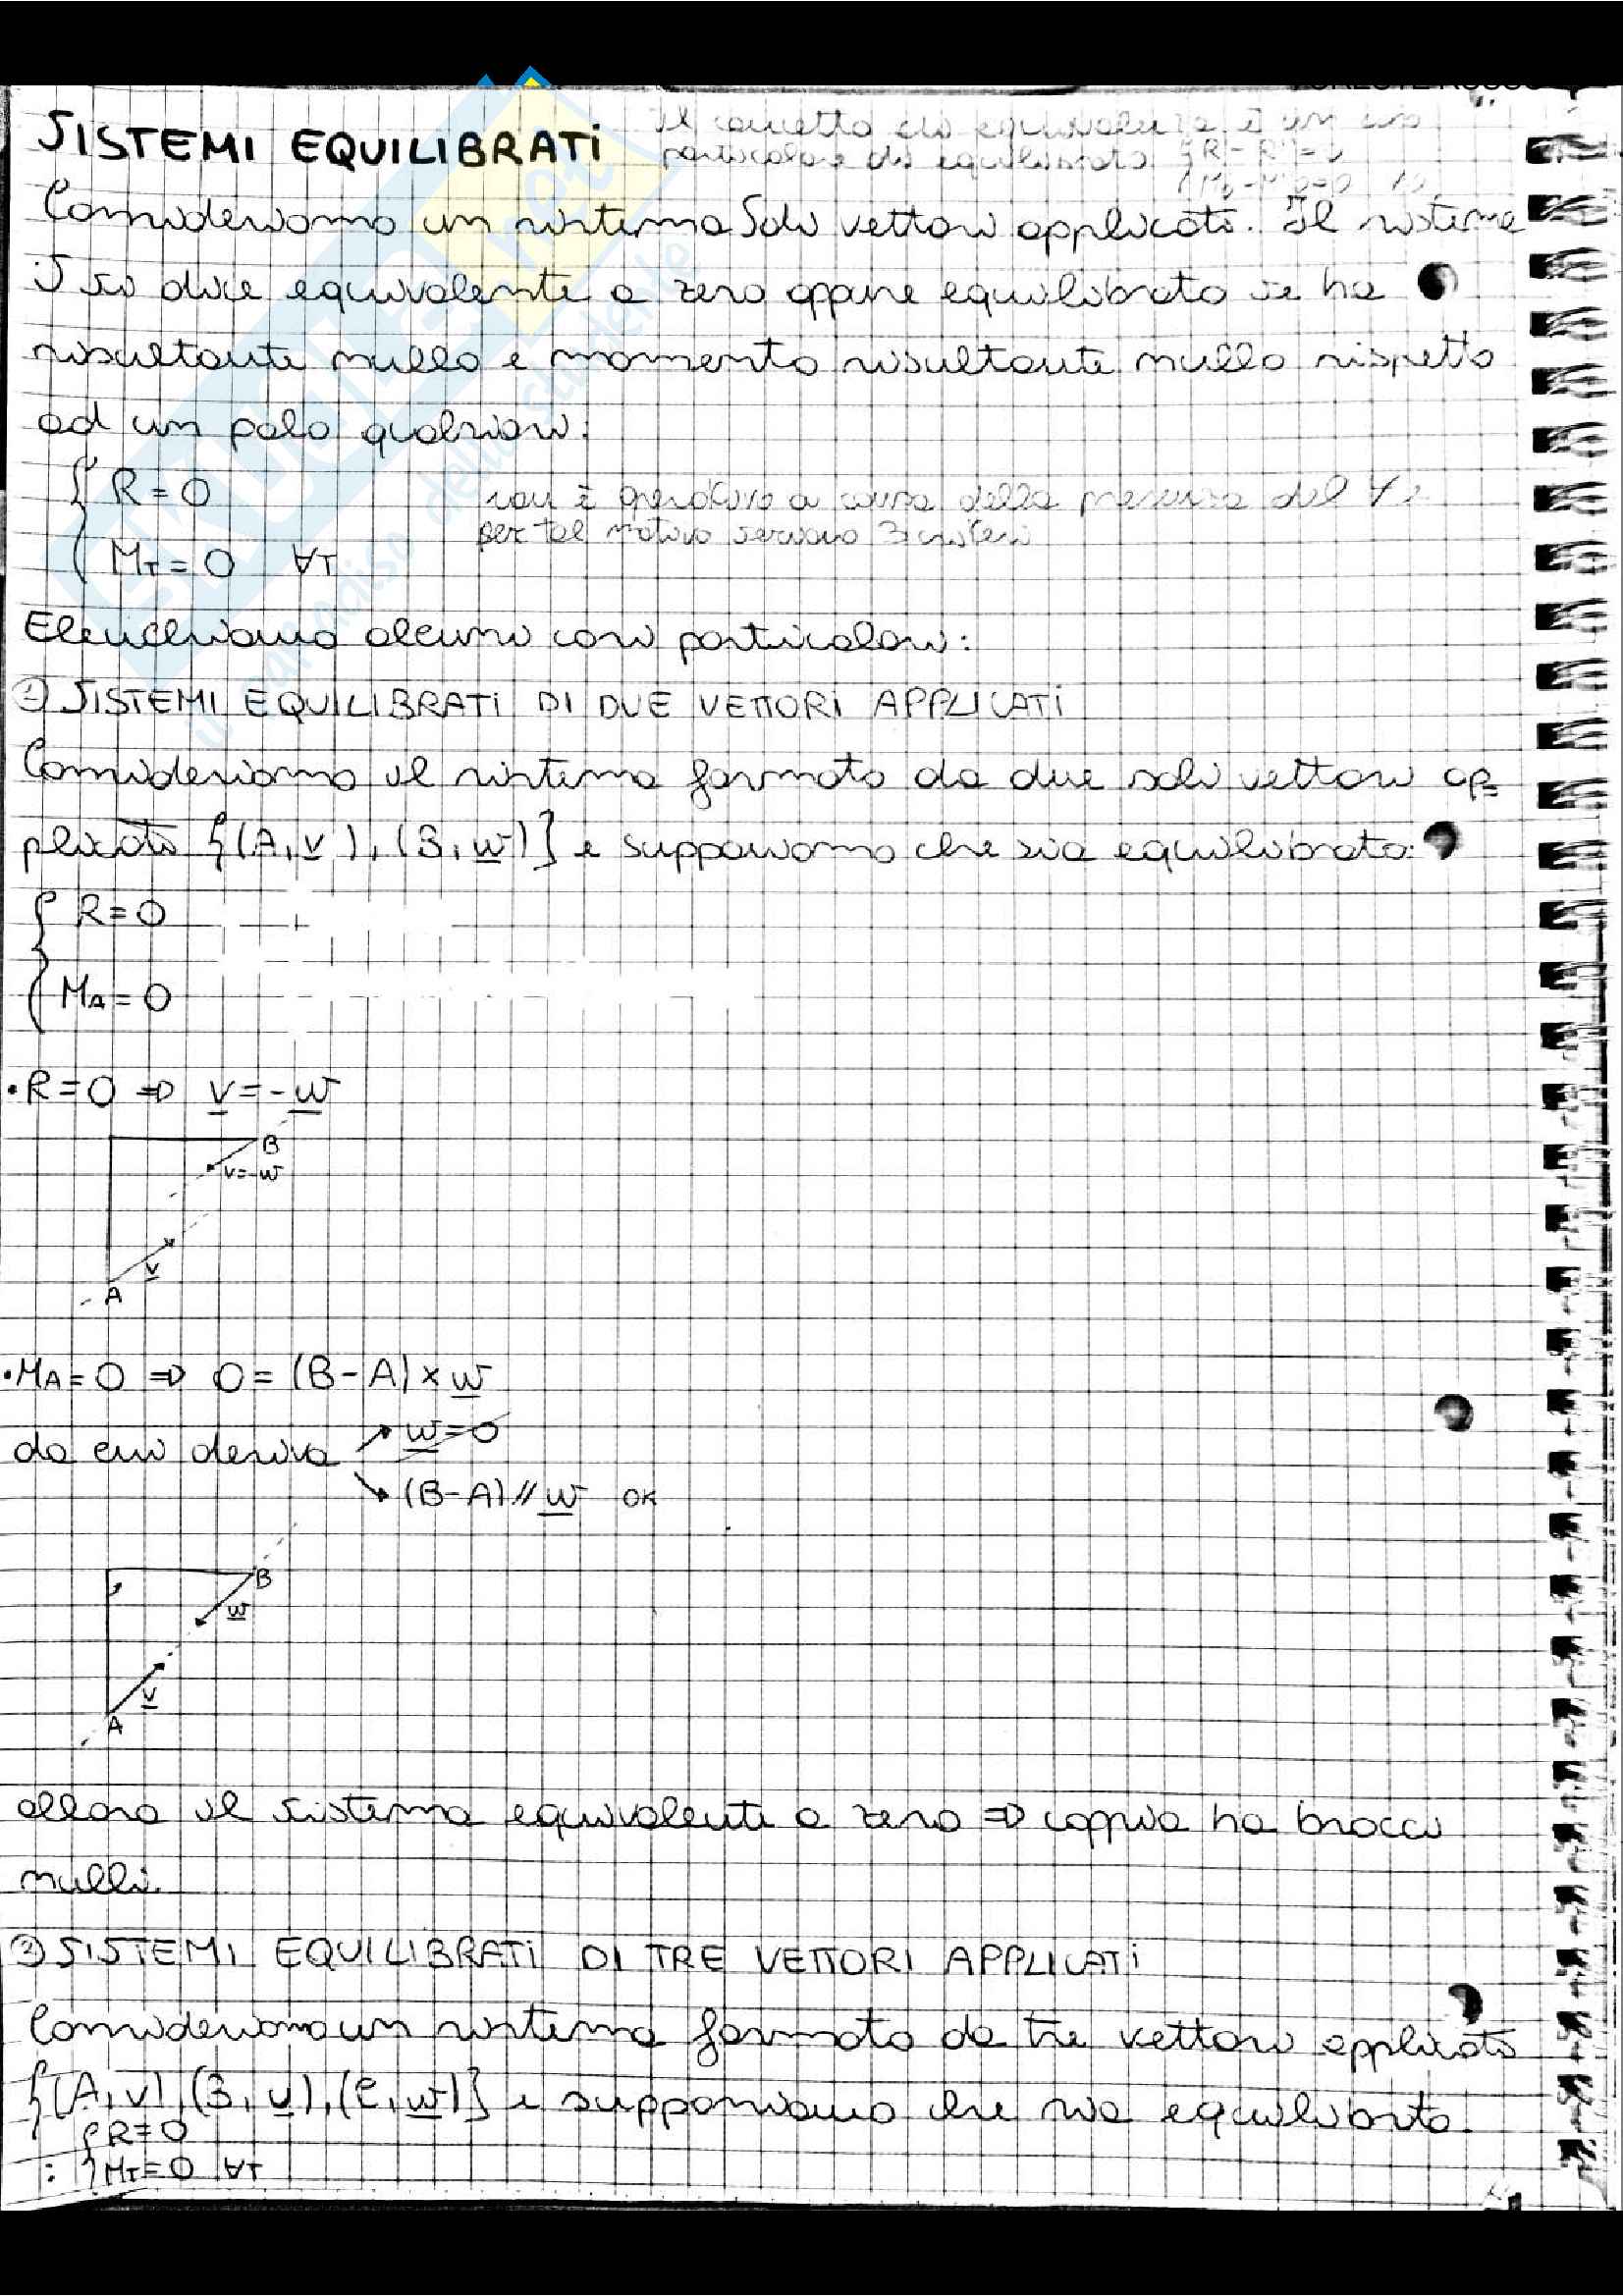 SISTEMI EQUILIBRATI
il concetto di equivalenza è un caso
particolare di equilibrato {R-R'=0
Consideriamo un sistema S di vettori applicati. Il sistema
S si dice equivalente a zero oppure equilibrato se ha
risultante nullo e momento risultante nullo rispetto
ad un polo qualsiasi:
{ R=0
non è operativo a causa della presenza del ∀
per tal motivo servono 3 criteri
MT=0 ∀T
Elenchiamo alcuni casi particolari:
① SISTEMI EQUILIBRATI DI DUE VETTORI APPLICATI
Consideriamo il sistema formato da due soli vettori ap=
plicati {(A, v), (B, w)} e supponiamo che sia equilibrato:
{ R=0
MA=0
•R=0 ⇒ v=-w
B
v=-w
v
A
•MA=0 ⇒ 0=(B-A)×w
da cui deriva
w=0
(B-A)//w OK
B
w
v
A
allora il sistema equivalente a zero ⇒ coppia ha bracci
nulli.
② SISTEMI EQUILIBRATI DI TRE VETTORI APPLICATI
Consideriamo un sistema formato da tre vettori applicati
{(A, v), (B, u), (C, w)} e supponiamo che sia equilibrato.
: { R=0
MT=0 ∀T